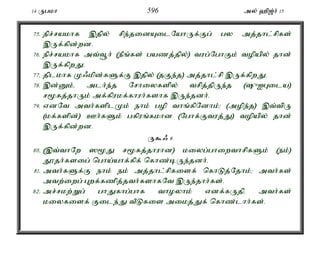 14 ருபமா 596 அல் ஹிஜ்ர் 15
75. நிச்சயமாக இதில் சிந்தனையுடையோருக்குப் பல அத்தாட்சிகள்
இருக்கின்றன.
76. நிச்சயமாக அவ்வூர் (நீங்கள் பயணத்தில்) வரப்போகும் வழியில் தான்
இருக்கிறது.
77. திடமாக முஃமின்களுக்கு இதில் (தகுந்த) அத்தாட்சி இருக்கிறது.
78. இன்னும், அடர்ந்த சோலைகளில் வசித்திருந்த (ஷுஐபுடைய)
சமூகத்தாரும் அக்கிரமக்காரர்களாக இருந்தனர்.
79. எனவே அவர்களிடமும் நாம் பழி வாங்கினோம்; (அழிந்த) இவ்விரு
(மக்களின்) ஊர்களும் பகிரங்கமான (போக்குவரத்து) வழியில் தான்
இருக்கின்றன.
ருகூஃ 6
80. (இவ்வாறே ஸமூது சமூகத்தாரான) மலைப்பாறைவாசிகளும் (நம்)
தூதர்களைப் பொய்யாக்கிக் கொண்டிருந்தனர்.
81. அவர்களுக்கு நாம் நம் அத்தாட்சிகளைக் கொடுத்தோம்; அவர்கள்
அவற்றைப் புறக்கணித்தவர்களாகவே இருந்தார்கள்.
82. அச்சமற்றுப் பாதுகாப்பாக வாழலாம் எனக்கருதி, அவர்கள்
மலைகளைக் குடைந்து வீடுகளை அமைத்துக் கொண்டார்கள்.